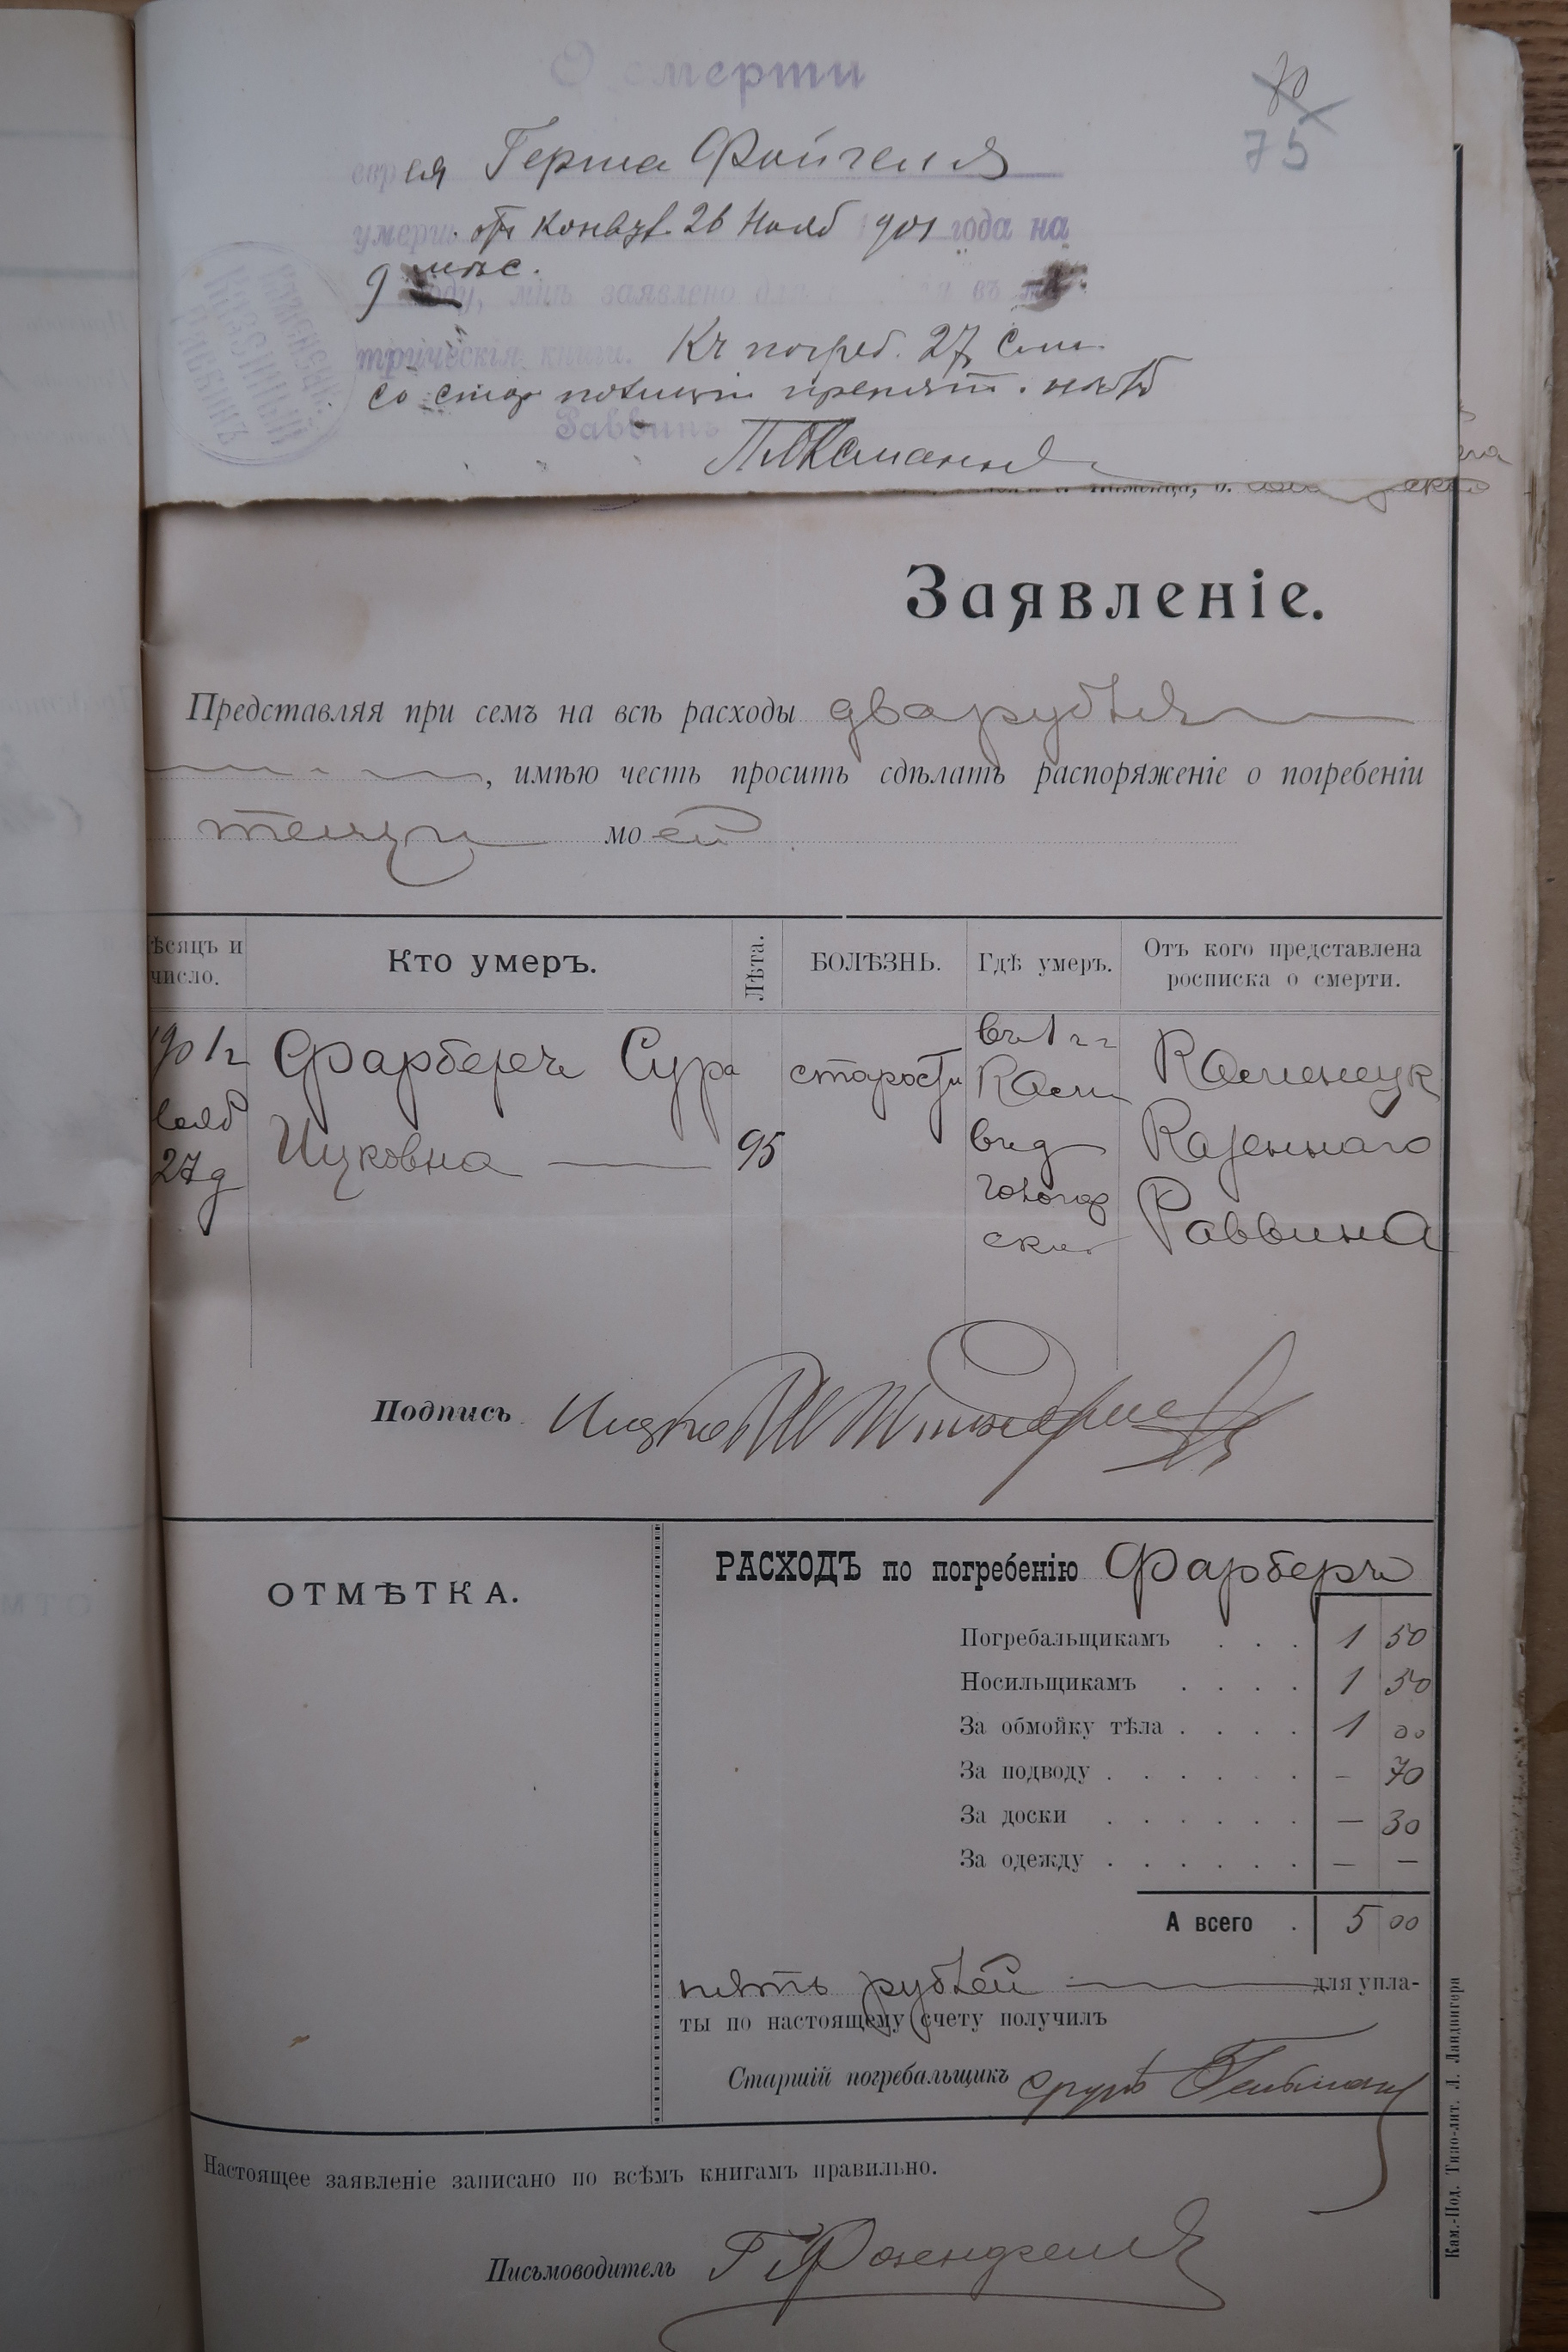 О смерти
70
75
еврея Герша Файгеля
умерш. отъ конвул. 26 Нояб 1901 года на
9 мѣс.
году, мнѣ заявлено для въ ме-
трическія книги. Къ погреб. 27 сего
со стор полиціи препят. нѣтъ
Раввинъ
КАМЕНЕЦК.
КАЗЕННЫЙ
РАВВИНЪ
Заявленіе.
Представляя при семъ на всѣ расходы два рубля
, имѣю честь просить сдѣлать распоряженіе о погребеніи
тещи моей
ѣсяцъ и число.
Кто умеръ.
Лѣта.
БОЛѢЗНЬ.
Гдѣ умеръ.
Отъ кого представлена росписка о смерти.
901 г
Фарберъ Сура
старости
въ г
Каменецк
нояб
27 д
Ицковна
95
Казеннаго
Раввина
Подпись
ОТМѢТКА.
РАСХОДЪ по погребенію Фарберъ
Погребальщикамъ . . . 1 50
Носильщикамъ . . . . 1 50
За обмойку тѣла . . . . 1 00
За подводу . . . . . . – 70
За доски . . . . . . — 30
За одежду . . . . . . — —
А всего . 5 00
пять рублей для упла-
ты по настоящему счету получилъ
Старшій погребальщикъ
Настоящее заявленіе записано по всѣмъ книгамъ правильно.
Письмоводитель
Кам.-Под. Типо-лит. Л. Ландвигера